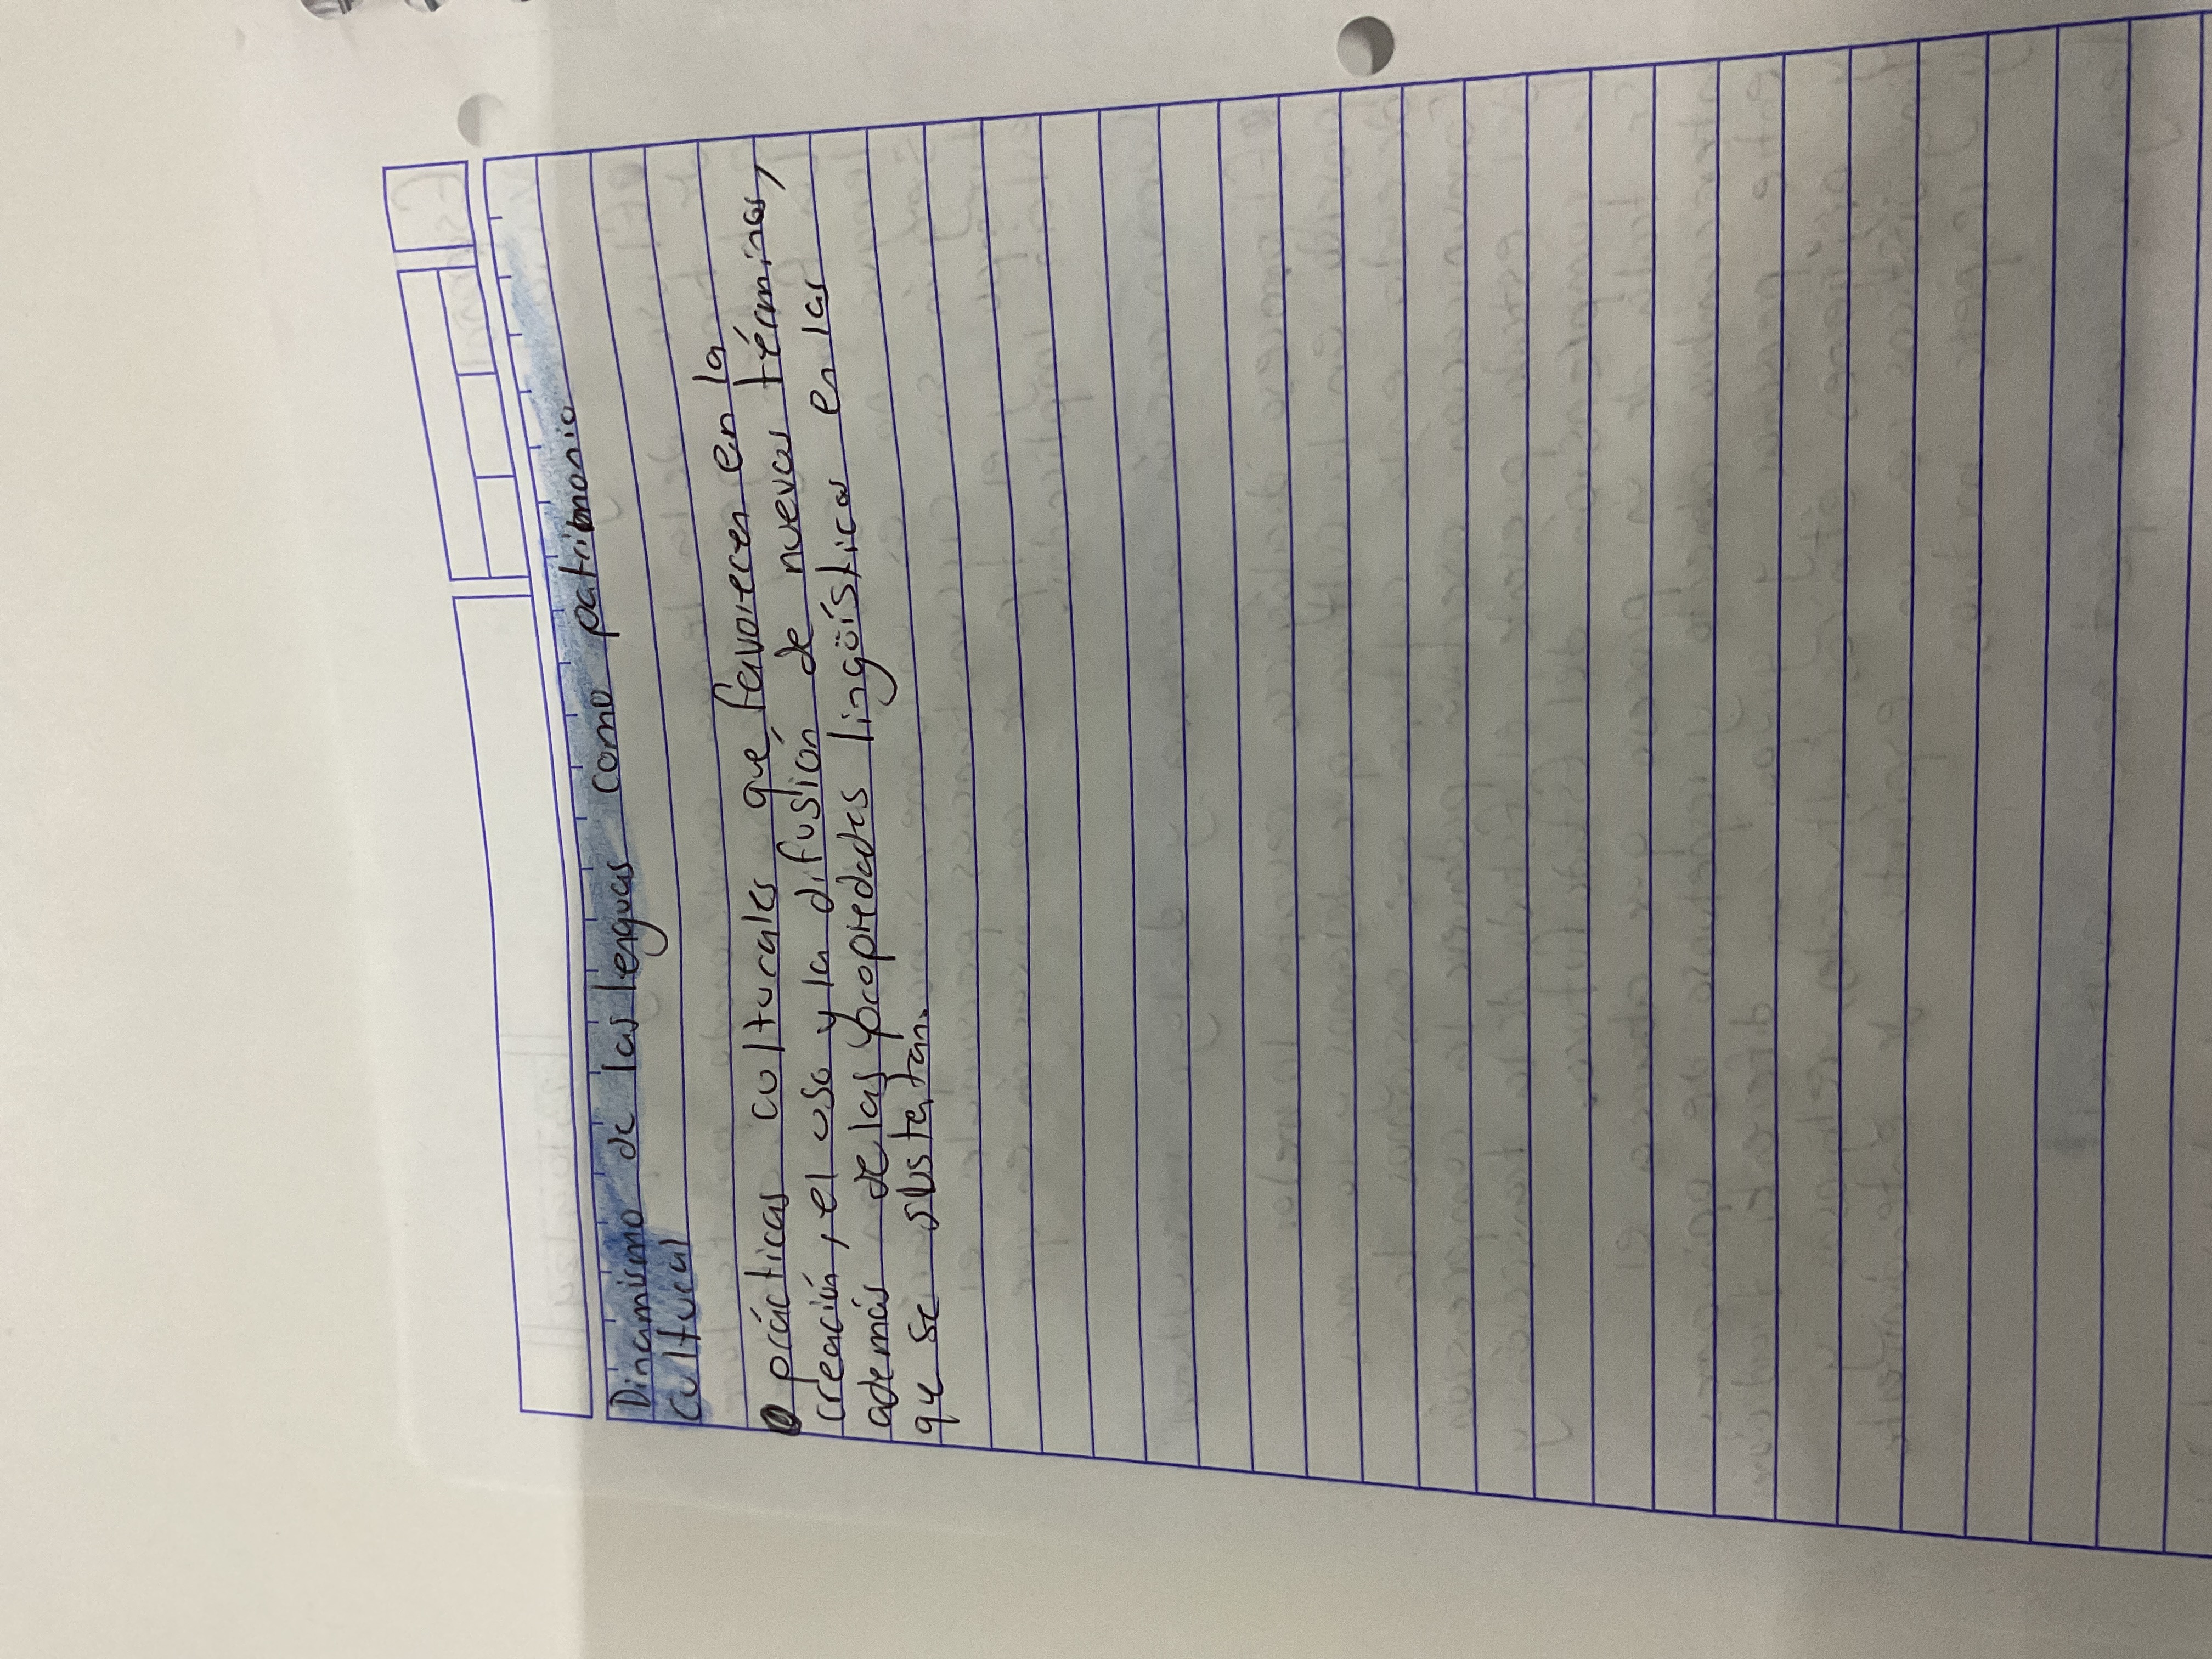 Dinamismo de las lenguas como patrimonio
cultural
prácticas culturales que favorecen en la
creación, el uso y la difusión de nuevos términos,
además de las propiedades lingüísticas en las
que se sustetan.